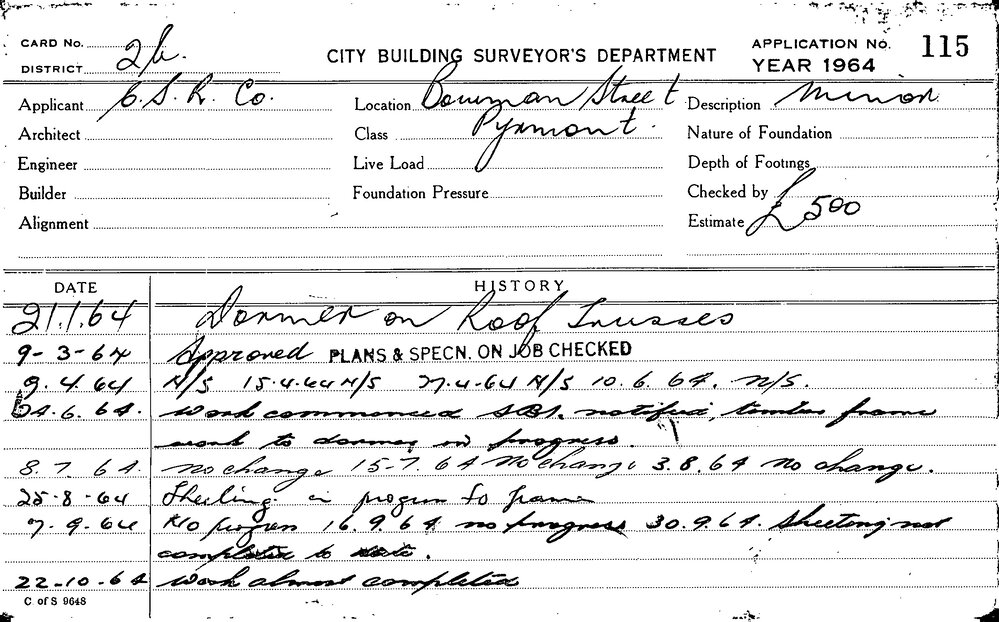 CARD No. 2b. CITY BUILDING SURVEYOR'S DEPARTMENT APPLICATION No. 115
DISTRICT YEAR 1964
Applicant C.S.R. Co. Location Bowman Street Description Minor
Architect Class Pyrmont. Nature of Foundation
Engineer Live Load Depth of Footings
Builder Foundation Pressure Checked by
Alignment Estimate £500
DATE HISTORY
21.1.64 Dormer on Roof Trusses
9-3-64 Approved PLANS & SPECN. ON JOB CHECKED
9.4.64 N/S 15.4.64 N/S 27.4.64 N/S 10.6.64. N/S.
24.6.64. Work commenced notified, timber frame
work to dormer in progress.
8.7.64. no change 15-7 64 No change 3.8.64 no change.
25-8-64 Sheeting in progress to frame
7-9-64 No progress 16.9.64 no progress 30.9.64. Sheeting not
completed to date.
22-10-64 work almost completed
C of S 9648